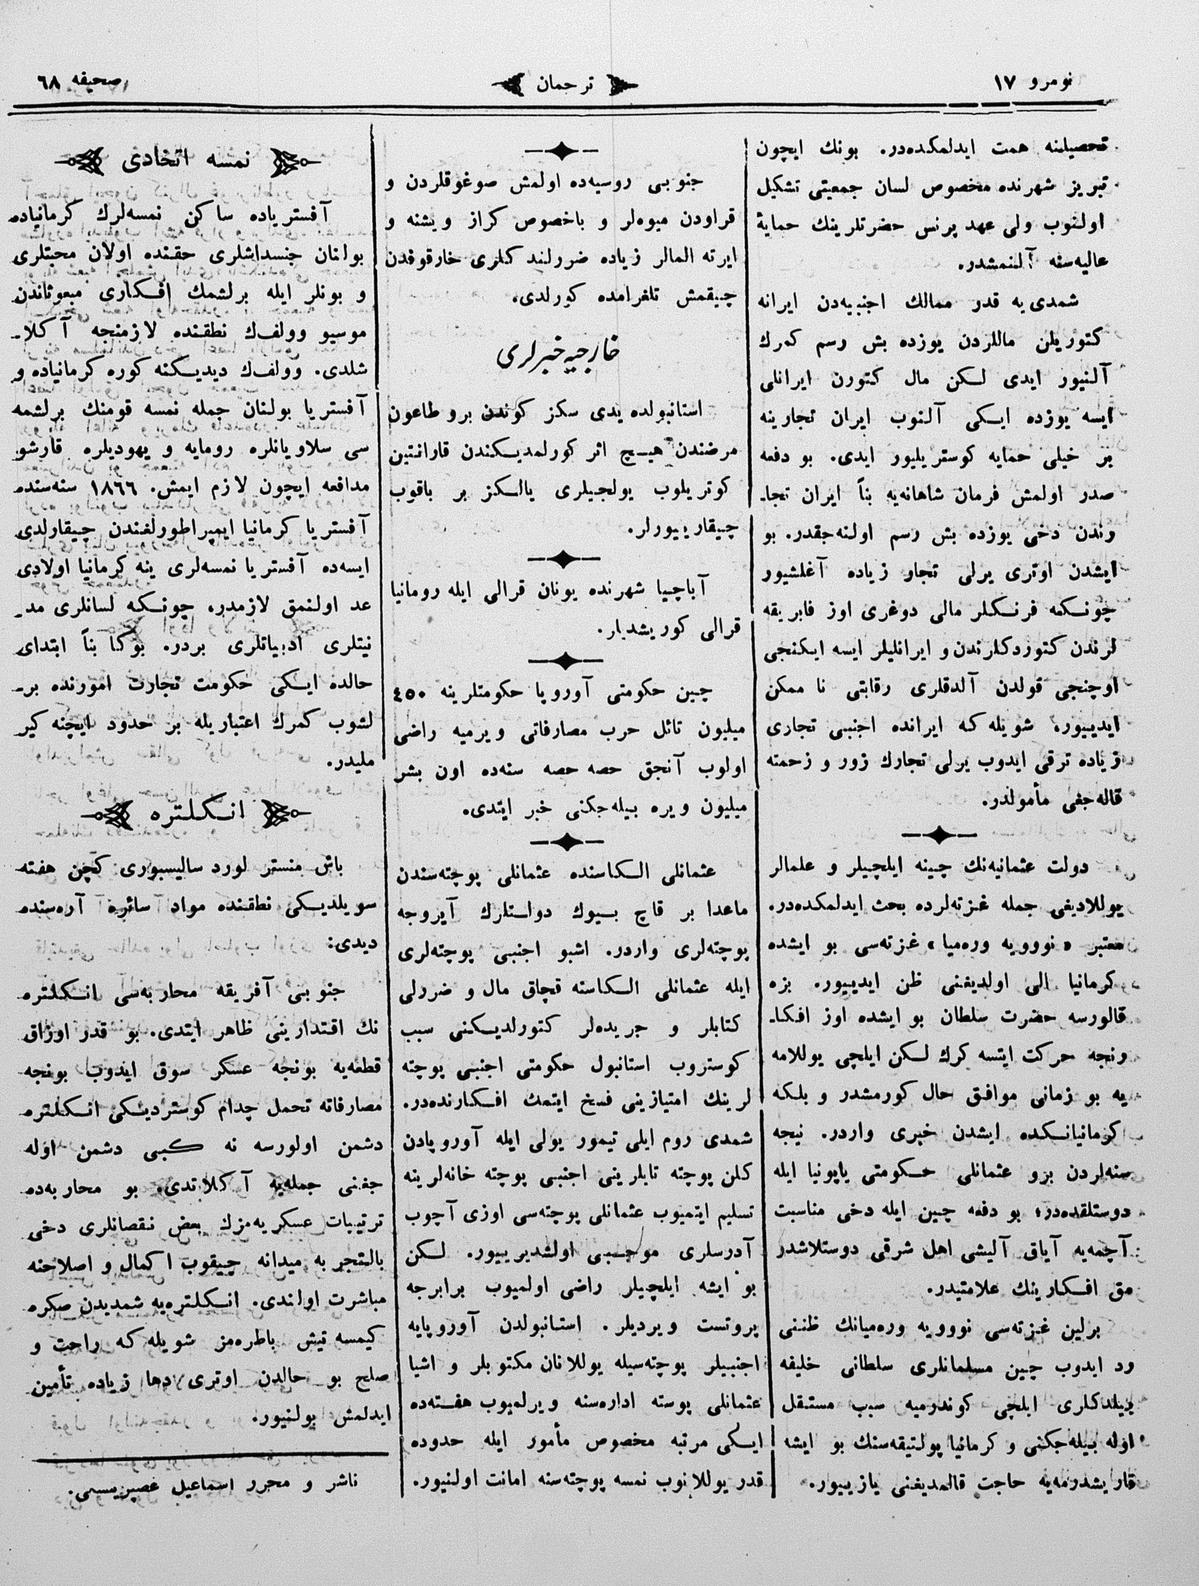 نومرو ١٧
ترجمان
صحیفه ٦٨
تحصیلنه همت ایدلمكده‌در. بونك ایچون
تبریز شهرنده مخصوص لسان جمعیتی تشكیل
اولنوب ولی عهد پرنس حضرتلرینك حمایهٔ
عالیه‌سنه آلنمشدر.
شمدی‌یه قدر ممالك اجنبیه‌دن ایرانه
كتوریلن ماللردن یوزده بش رسم كمرك
آلنیور ایدی لكن مال كتورن ایرانلی
ایسه یوزده ایكی آلنوب ایران تجارینه
بر خیلی حمایه كوستریلیور ایدی. بو دفعه
صدر اولمش فرمان شاهانه‌یه بناً ایران تجا-
رندن دخی یوزده بش رسم اولنه‌جقدر. بو
ایشدن اوتری یرلی تجار زیاده آغلشیور
چونكه فرنكلر مالی دوغری اوز فابریقه
لرندن كتوردكلرندن و ایرانلیلر ایسه ایكنجی
اوچنجی قولدن آلدقلری رقابتی نا ممكن
ایدییور، شویله‌كه ایرانده اجنبی تجاری
زیاده ترقی ایدوب یرلی تجارك زور و زحمته
قاله‌جغی مأمولدر.
دولت عثمانیه‌نك چینه ایلچیلر و علمالر
یوللادیغی جمله غزته‌لرده بحث ایدلمكده‌در.
معتبر «نوویه وره‌میا» غزته‌سی بو ایشده
كرمانیا الی اولدیغنی ظن ایدییور. بزه
قالورسه حضرت سلطان بو ایشده اوز افكا-
رنجه حركت ایتسه كرك لكن ایلچی یوللامه
یه بو زمانی موافق حال كورمشدر و بلكه
كرمانیانكده ایشدن خبری واردر. نیجه
سنه‌لردن برو عثمانلی حكومتی یاپونیا ایله
دوستلقده‌در؛ بو دفعه چین ایله دخی مناسبت
آچمه‌یه آیاق آلیشی اهل شرقی دوستلاشدر
مق افكارینك علامتیدر.
برلین غزته‌سی نوویه وره‌میانك ظننی
رد ایدوب چین مسلمانلری سلطانی خلیفه
بیلدكلری ایلچی كوندرمیه سبب مستقل
اوله بیله‌جكنی و كرمانیا پولتیقه‌سنك بو ایشه
قاریشدرمه‌یه حاجت قالمدیغنی یازییور.
جنوبی روسیه‌ده اولمش صوغوقلردن و
قراودن میوه‌لر و باخصوص كراز و یشنه و
ایرته المالر زیاده ضررلندكلری خارقوفدن
چیقمش تلغرامده كورلدی.
خارجیه خبرلری
استانبولده یدی سكز كوندن برو طاعون
مرضندن هیچ اثر كورلمدیكندن قارانتین
كوتریلوب یولجیلری یالكز بر باقوب
چیقارییورلر.
آباچیا شهرنده یونان قرالی ایله رومانیا
قرالی كوریشدیلر.
چین حكومتی آوروپا حكومتلرینه ٤٥٠
میلیون تائل حرب مصارفاتی ویرمیه راضی
اولوب آنجق حصه حصه سنه‌ده اون بشر
میلیون ویره بیله‌جكنی خبر ایتدی.
عثمانلی الكاسنده عثمانلی پوچته‌سندن
ماعدا بر قاچ بیوك دولتلرك آیروجه
پوچته‌لری واردر. اشبو اجنبی پوچته‌لری
ایله عثمانلی الكاسنه قچاق مال و ضررلی
كتابلر و جریده‌لر كتورلدیكنی سبب
كوستروب استانبول حكومتی اجنبی پوچته
لرینك امتیازینی فسخ ایتمك افكارنده‌در.
شمدی روم ایلی تیمور یولی ایله آوروپادن
كلن پوچته تایلرینی اجنبی پوچته خانه‌لرینه
تسلیم ایتمیوب عثمانلی پوچته‌سی اوزی آچوب
آدرسلری موجبی اولشدیرییور. لكن
بو ایشه ایلچیلر راضی اولمیوب برابرجه
پروتست ویردیلر. استانبولدن آوروپایه
اجنبیلر پوچته‌سیله یوللانان مكتوبلر و اشیا
عثمانلی پوسته اداره‌سنه ویرلمیوب هفته‌ده
ایكی مرتبه مخصوص مأمور ایله حدوده
قدر یوللانوب نمسه پوچته‌سنه امانت اولنیور.
نمسه اتحادی
آفستریاده ساكن نمسه‌لرك كرمانیاده
بولنان جنسداشلری حقنده اولان محبتلری
و بونلر ایله برلشمك افكاری مبعوثاندن
موسیو وولف‌ك نطقنده لازمنجه آكلا-
شلدی. وولف‌ك دیدیكنه كوره كرمانیاده و
آفستریا بولنان جمله نمسه قومنك برلشمه
سی سلاویانلره رومایه و یهودیلره قارشو
مدافعه ایچون لازم ایمش. ١٨٦٦ سنه‌سنده
آفستریا كرمانیا ایمپراطورلغندن چیقارلدی
ایسه‌ده آفستریا نمسه‌لری ینه كرمانیا اولادی
عد اولنمق لازمدر، چونكه لسانلری مد-
نیتلری ادبیاتلری بردر. بوكا بناً ابتدای
حالده ایكی حكومت تجارت امورنده بر-
لشوب كمرك اعتباریله بر حدود ایچنه كیر
ملیدر.
انكلتره
باش منستر لورد سالیسبوری كچن هفته
سویلدیكی نطقنده مواد سائره آره‌سنده
دیدی:
جنوبی آفریقه محاربه‌سی انكلتره
نك اقتدارینی ظاهر ایتدی. بو قدر اوزاق
قطعه‌یه بونجه عسكر سوق ایدوب بونجه
مصارفاته تحمل چدام كوستردیكی انكلتره
دشمن اولورسه نه كبی دشمن اوله
جغنی جمله‌یه آكلاتدی. بو محاربه‌ده
ترتیبات عسكریه‌مزك بعض نقصانلری دخی
بالتجربه میدانه چیقوب اكمال و اصلاحنه
مباشرت اولندی. انكلتره‌یه شمدیدن صكره
كیمسه تیش باطره‌مز شویله‌كه راحت و
صلح بو حالدن اوتری دها زیاده تأمین
ایدلمش بولنیور.
ناشر و محرر اسماعیل غصپرینسكی.